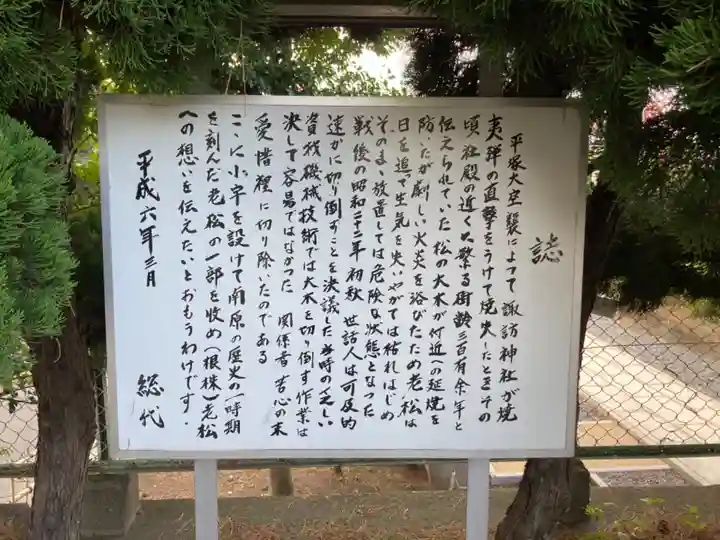 誌
平塚大空襲によって諏訪神社が焼
夷弾の直撃をうけて焼失したときその
頃社殿の近くに繁る樹齢三百有余年と
伝えられていた松の大木が付近への延焼を
防いだが劇しい火炎を浴びたため老松は
日を追って生気を失いやがては枯れはじめ
そのまゝ放置しては危険な状態となった
戦後の昭和二十二年初秋 世話人は可及的
速かに切り倒すことを決議した当時の乏しい
資材機械技術では大木を切り倒す作業は
決して容易ではなかった 関係者苦心の末
愛惜裡に切り除いたのである
ここに小宇を設けて南原の歴史の一時期
を刻んだ老松の一部を收め(根株)老松
への想いを伝えたいとおもうわけです.
平成六年三月
総代